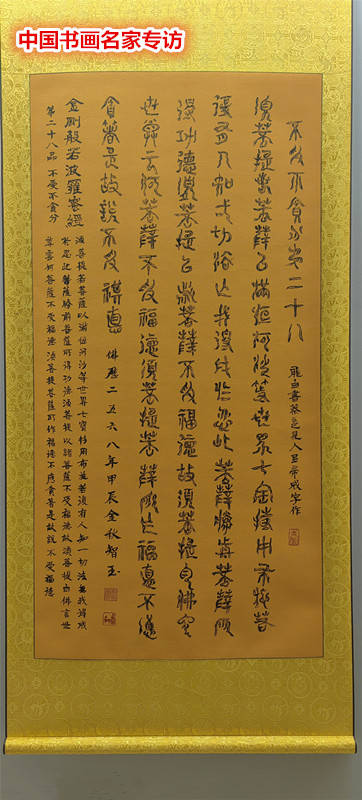 中国书画名家专访
不受不貪分第二十八
書蔡邕見人以帚成字作
須菩提若菩薩以滿恒河沙等世界七寶持用布施若
復有人知一切法無我得成於忍此菩薩勝前菩薩所
得功德須菩提以諸菩薩不受福德故須菩提白佛言
世尊云何菩薩不受福德須菩提菩薩所作福德不應
貪著是故說不受福德 佛曆二五六八年甲辰金秋智玉
金剛般若波羅蜜經
第二十八品 不受不貪分
須菩提若菩薩以滿恒河沙等世界七寶持用布施若復有人知一切法無我得成
於忍此菩薩勝前菩薩所得功德須菩提以諸菩薩不受福德故須菩提白佛言世
尊云何菩薩不受福德須菩提菩薩所作福德不應貪著是故說不受福德